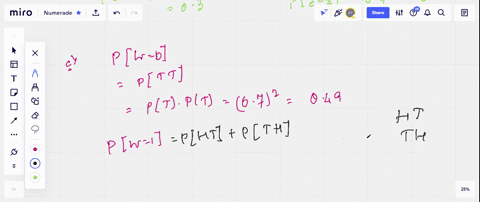 miro Numerade Share
= 0.3
c) P[W=0]
= P[TT]
= P(T).P(T) = (0.7)² = 0.49
P[W=1] = P[HT] + P[TH]
HT
TH
25%